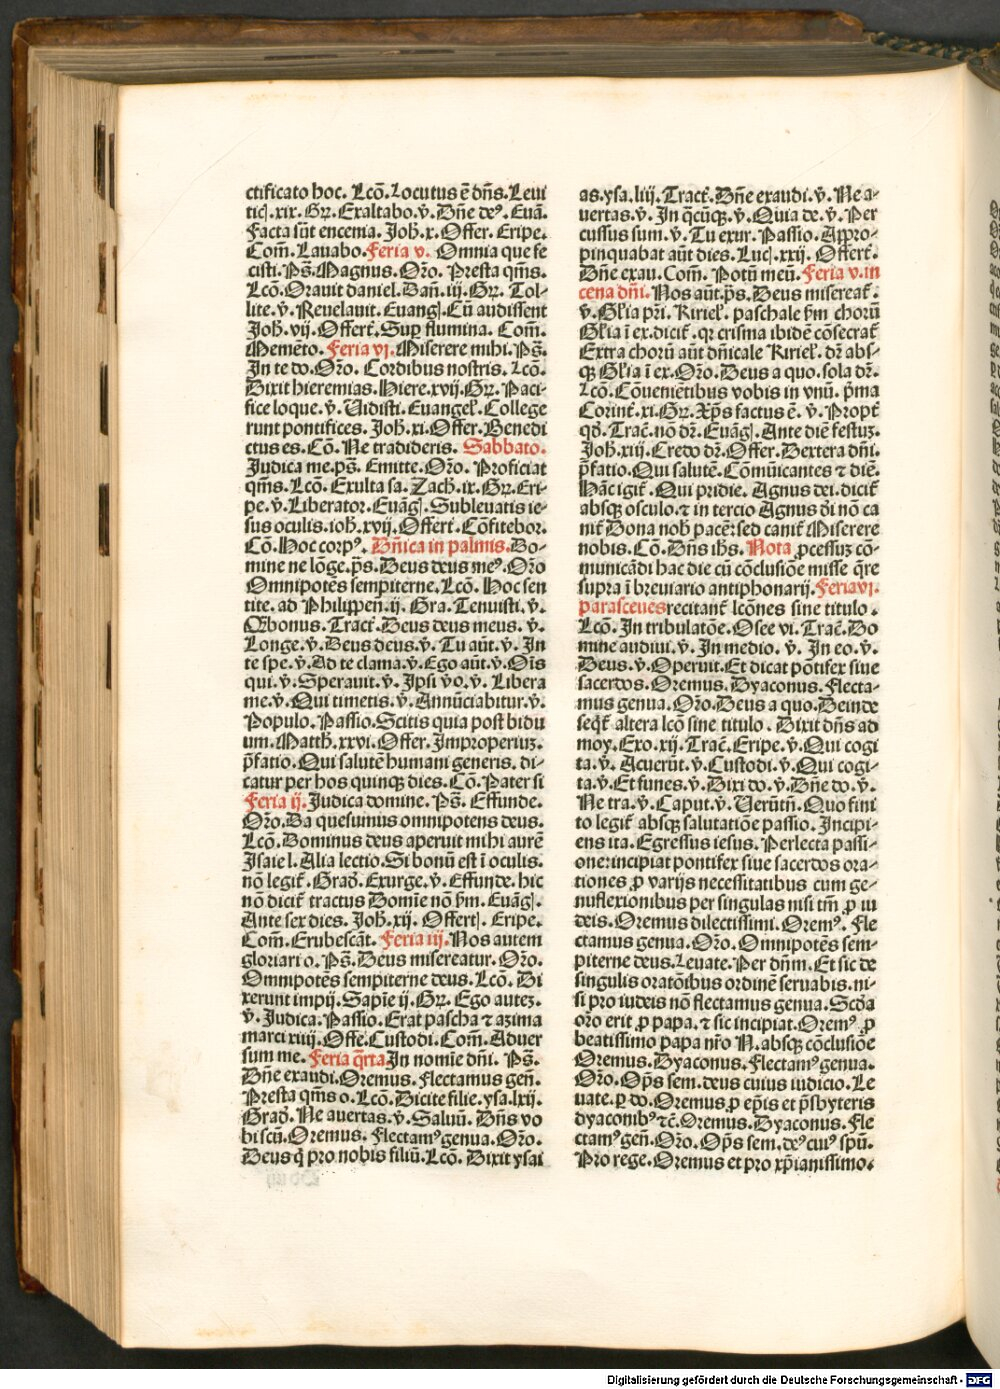 ctificato hoc. Lcõ. Locutus ẽ dñs. Leui
ticꝭ. xix. Gꝝ. Exaltabo. ṽ. Dñe deꝰ. Euã.
Facta sũt encenia. Joh̃. x. Offer. Eripe.
Com̃. Lauabo. Feria v. Omnia que fe
cisti. Ps̃. Magnus. Or̃o. Presta qm̃s.
Lcõ. Orauit daniel. Dañ. iij. Gꝝ. Tol-
lite. ṽ. Reuelauit. Euangꝭ. Cũ audissent
Joh̃. vij. Offert̃. Suꝑ flumina. Com̃.
Memẽto. Feria vi. Miserere mihi. Ps̃.
In te do. Or̃o. Cordibus nostris. Lcõ.
Dixit hieremias. Hiere. xvij. Gꝝ. Paci-
fice loque. ṽ. Uidisti. Euangel̃. College
runt pontifices. Joh̃. xi. Offer. Benedi
ctus es. Cõ. Ne tradideris. Sabbato.
Judica me. ps̃. Emitte. Or̃o. Proficiat
qm̃s. Lcõ. Exulta sa. Zach̃. ix. Gꝝ. Eri-
pe. ṽ. Liberator. Euãgꝭ. Subleuatis ie-
sus oculis. ioh̃. xvij. Offert̃. Cõfitebor.
Cõ. Hoc corpꝰ. Dñica in palmis. Do-
mine ne lõge. ps̃. Deus deus meꝰ. Or̃o
Omnipotẽs sempiterne. Lcõ. Hoc sen
tite. ad Philippeñ. ij. Gra. Tenuisti. ṽ.
Q̃bonus. Tract̃. Deus deus meus. ṽ.
Longe. ṽ. Deus deus. ṽ. Tu aũt. ṽ. In
te spe. ṽ. Ad te clama. ṽ. Ego aũt. ṽ. Oĩs
qui. ṽ. Sperauit. ṽ. Ipsi ṽo. ṽ. Libera
me. ṽ. Qui timetis. ṽ. Annũciabitur. ṽ.
Populo. Passio. Scitis quia post bidu
um. Matth̃. xxvi. Offer. Improperiuꝫ.
p̃fatio. Qui salutẽ humani generis. di-
catur per hos quinqꝫ dies. Cõ. Pater si
Feria ij. Judica domine. Ps̃. Effunde.
Or̃o. Da quesumus omnipotens deus.
Lcõ. Dominus deus aperuit mihi aurẽ
Isaie l. Alia lectio. Si bonũ est ĩ oculis.
nõ legit̃. Grad̃. Exurge. ṽ. Effunde. hic
nõ dicit̃ tractus Domĩe nõ ẜm. Euãgꝭ.
Ante sex dies. Joh̃. xij. Offertꝭ. Eripe.
Com̃. Erubescãt. Feria iij. Nos autem
gloriari o. Ps̃. Deus misereatur. Or̃o.
Omnipotẽs sempiterne deus. Lcõ. Di
xerunt impij. Sapĩe ij. Gꝝ. Ego auteꝫ.
ṽ. Judica. Passio. Erat pascha ⁊ azima
marci xiiij. Offe. Custodi. Com̃. Aduer
sum me. Feria q̃rta. In nomĩe dñi. Ps̃.
Dñe exaudi. Oremus. Flectamus geñ.
Presta qm̃s o. Lcõ. Dicite filie. ysa. lxij.
Grad̃. Ne auertas. ṽ. Saluũ. Dñs vo
biscũ. Oremus. Flectamꝰ genua. Or̃o.
Deus q̃ pro nobis filiũ. Lcõ. Dixit ysai
as. ysa. liij. Tract̃. Dñe exaudi. ṽ. Ne a-
uertas. ṽ. In q̃cũqꝫ. ṽ. Quia de. ṽ. Per
cussus sum. ṽ. Tu exur. Passio. Appro-
pinquabat aũt dies. Lucꝭ. xxij. Offert̃.
Dñe exau. Com̃. Potũ meũ. Feria v. in
cena dñi. Nos aũt. ps̃. Deus misereat̃.
ṽ. Gl̃ia pr̃i. Kiriel̃. paschale ẜm chorũ
Gl̃ia ĩ ex. dicit̃. qr crisma ibidẽ cõsecrat̃
Extra chorũ aũt dñicale Kiriel̃. dr̃ abs-
qꝫ Gl̃ia ĩ ex. Or̃o. Deus a quo. sola dr̃.
Lcõ. Cõueniẽtibus vobis in vnũ. p̃ma
Corint̃. xi. Gꝝ. Xp̃s factus ẽ. ṽ. Propt̃
qđ. Trac̃. nõ dr̃. Euãgꝭ. Ante diẽ festuꝫ.
Joh̃. xiij. Credo dr̃. Offer. Dextera dñi.
p̃fatio. Qui salutẽ. Cõmũicantes ⁊ diẽ.
Hãc igit̃. Qui pridie. Agnus dei. dicit̃
absqꝫ osculo. ⁊ in tercio Agnus di nõ ca
nit̃ Dona nob̃ pacẽ: sed canit̃ Miserere
nobis. Cõ. Dñs ih̃s. Nota ꝓcessuꝫ cõ-
municãdi hac die cũ cõclusiõe misse q̃re
supra ĩ breuiario antiphonarij. Feria vi.
parasceues recitant̃ lcõnes sine titulo.
Lcõ. In tribulatõe. Osee vi. Trac̃. Do
mine audiui. ṽ. In medio. ṽ. In eo. ṽ.
Deus. ṽ. Operuit. Et dicat põtifex siue
sacerdos. Oremus. Dyaconus. Flecta-
mus genua. Or̃o. Deus a quo. Deinde
seqt̃ altera lcõ sine titulo. Dixit dñs ad
moy. Exo. xij. Trac̃. Eripe. ṽ. Qui cogi
ta. ṽ. Acuerũt. ṽ. Custodi. ṽ. Qui cogi-
ta. ṽ. Et funes. ṽ. Dixi do. ṽ. Dñe do. ṽ.
Ne tra. ṽ. Caput. ṽ. Uerũtñ. Quo fini
to legit̃ absqꝫ salutatiõe passio. Incipi-
ens ita. Egressus iesus. Perlecta passi-
one: incipiat pontifex siue sacerdos ora-
tiones ꝓ varijs necessitatibus cum ge-
nuflexionibus per singulas nisi tm̃ ꝓ iu
deis. Oremus dilectissimi. Oremꝰ. Fle
ctamus genua. Or̃o. Omnipotẽs sem-
piterne deus. Leuate. Per dñm. Et sic de
singulis oratõibus ordinẽ seruabis. ni-
si pro iudeis nõ flectamus genua. Scđa
or̃o erit ꝓ papa. ⁊ sic incipiat. Oremꝰ ꝓ
beatissimo papa nr̃o N. absqꝫ cõclusiõe
Oremus. Dyaconus. Flectamꝰ genua.
Or̃o. Op̃s sem. deus cuius iudicio. Le
uate. ꝑ do. Oremus ꝓ ep̃is et p̃sbyteris
dyaconibꝰ ⁊c̃. Oremus. Dyaconus. Fle
ctamꝰ geñ. Or̃o. Op̃s sem. deꝰ cuiꝰ spũ.
Pro rege. Oremus et pro xp̃ianissimo.
Digitalisierung gefördert durch die Deutsche Forschungsgemeinschaft - DFG